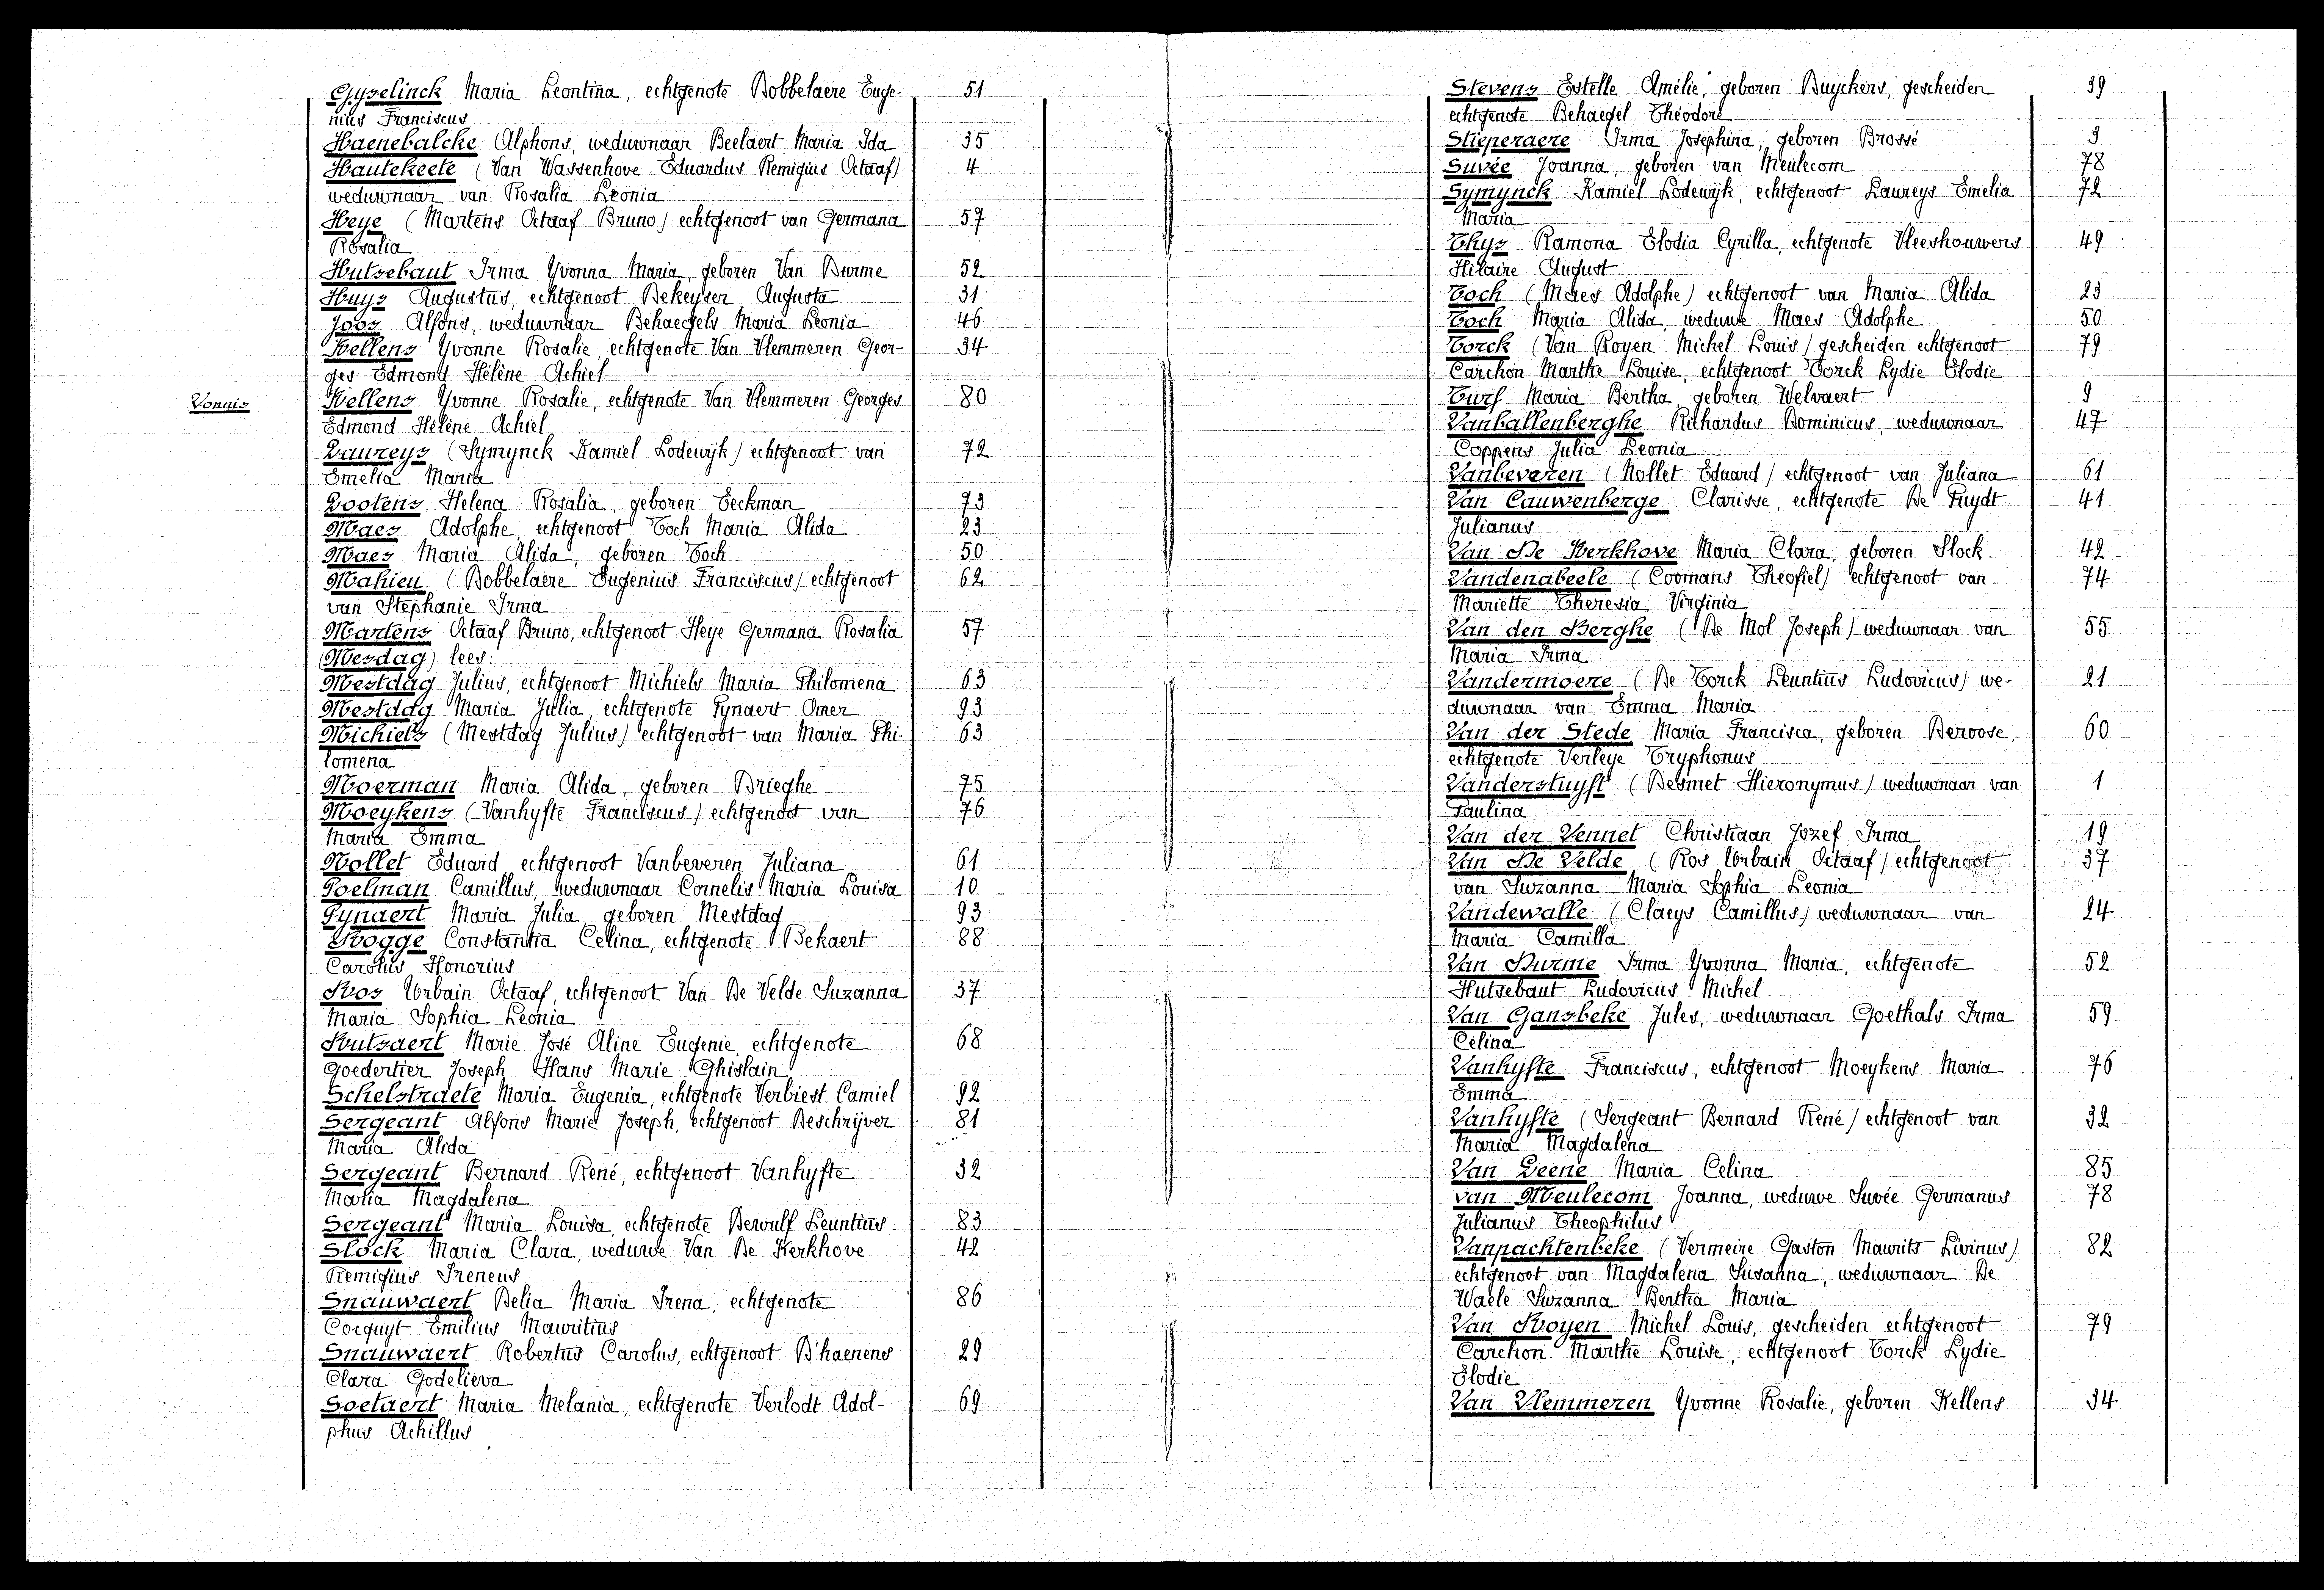 Gyselinck Maria Leontina, echtgenote Dobbelaere Euge- 51
nius Franciscus
Haenebalcke Alphons, weduwnaar Beelaert Maria Ida 35
Hautekeete (Van Wassenhove Eduardus Remigius Octaaf) 4
weduwnaar van Rosalia Leonia
Heye (Martens Octaaf Bruno) echtgenoot van Germana 57
Rosalia
Hutsebaut Irma Yvonna Maria, geboren Van Durme 52
Huys Augustus, echtgenoot Dekeyser Augusta 31
Joos Alfons, weduwnaar Dehaegels Maria Leonia 46
Kellens Yvonne Rosalie, echtgenote Van Vlemmeren Geor- 34
ges Edmond Hélène Achiel
Vonnis Kellens Yvonne Rosalie, echtgenote Van Vlemmeren Georges 80
Edmond Hélène Achiel
Laureys (Symynck Kamiel Lodewijk) echtgenoot van 72
Emelia Maria
Lootens Helena Rosalia, geboren Eeckman 73
Maes Adolphe, echtgenoot Toch Maria Alida 23
Maes Maria Alida, geboren Toch 50
Mahieu (Dobbelaere Eugenius Franciscus) echtgenoot 62
van Stephanie Irma
Martens Octaaf Bruno, echtgenoot Heye Germana Rosalia 57
(Mesdag) lees:
Mestdag Julius, echtgenoot Michiels Maria Philomena 63
Mestdag Maria Julia, echtgenote Pynaert Omer 93
Michiels (Mestdag Julius) echtgenoot van Maria Phi- 63
lomena
Moerman Maria Alida, geboren Drieghe 75
Moeykens (Vanhyfte Franciscus) echtgenoot van 76
Maria Emma
Nollet Eduard, echtgenoot Vanbeveren Juliana 61
Poelman Camillus, weduwnaar Cornelis Maria Louisa 10
Pynaert Maria Julia, geboren Mestdag 93
Rogge Constantia Celina, echtgenote Dekaert 88
Carolus Honorius
Ros Urbain Octaaf, echtgenoot Van De Velde Suzanna 37
Maria Sophia Leonia
Rutsaert Marie José Aline Eugenie, echtgenote 68
Goedertier Joseph Hans Marie Ghislain
Schelstraete Maria Eugenia, echtgenote Verbiest Camiel 92
Sergeant Alfons Marie Joseph, echtgenoot Deschrijver 81
Maria Alida
Sergeant Bernard René, echtgenoot Vanhyfte 32
Maria Magdalena
Sergeant Maria Louisa, echtgenote Dewulf Leuntius 83
Slock Maria Clara, weduwe Van De Kerkhove 42
Remigius Ireneus
Snauwaert Delia Maria Irena, echtgenote 86
Cocquyt Emilius Mauritius
Snauwaert Robertus Carolus, echtgenoot D'haenens 29
Clara Godelieva
Soetaert Maria Melania, echtgenote Verlodt Adol- 69
phus Achillus
Stevens Estelle Amélie, geboren Buyckers, gescheiden 39
echtgenote Dehaegel Théodore
Stieperaere Irma Josephina, geboren Brossé 3
Suvée Joanna, geboren van Meulecom 78
Symynck Kamiel Lodewijk, echtgenoot Laureys Emelia 72
Maria
Thys Ramona Elodia Cyrilla, echtgenote Vleeshouwers 49
Hilaire August
Toch (Maes Adolphe) echtgenoot van Maria Alida 23
Toch Maria Alida, weduwe Maes Adolphe 50
Torck (Van Royen Michel Louis) gescheiden echtgenoot 79
Carchon Marthe Louise, echtgenoot Torck Lydie Elodie
Turf Maria Bertha, geboren Welvaert 9
Vanballenberghe Richardus Dominicus, weduwnaar 47
Coppens Julia Leonia
Vanbeveren (Nollet Eduard) echtgenoot van Juliana 61
Van Cauwenberge Clarisse, echtgenote De Puydt 41
Julianus
Van De Kerkhove Maria Clara, geboren Slock 42
Vandenabeele (Coomans Theofiel) echtgenoot van 74
Mariette Theresia Virginia
Van den Berghe (De Mol Joseph) weduwnaar van 55
Maria Irma
Vandermoere (De Torck Leuntius Ludovicus) we- 21
duwnaar van Emma Maria
Van der Stede Maria Francisca, geboren Deroose, 60
echtgenote Verleye Tryphonus
Vanderstuyft (Desmet Hieronymus) weduwnaar van 1
Paulina
Van der Vennet Christiaan Jozef Irma 19
Van De Velde (Ros Urbain Octaaf) echtgenoot 37
van Suzanna Maria Sophia Leonia
Vandewalle (Claeys Camillus) weduwnaar van 24
Maria Camilla
Van Durme Irma Yvonna Maria, echtgenote 52
Hutsebaut Ludovicus Michel
Van Gansbeke Jules, weduwnaar Goethals Irma 59
Celina
Vanhyfte Franciscus, echtgenoot Moeykens Maria 76
Emma
Vanhyfte (Sergeant Bernard René) echtgenoot van 32
Maria Magdalena
Van Leene Maria Celina 85
van Meulecom Joanna, weduwe Suvée Germanus 78
Julianus Theophilus
Vanpachtenbeke (Vermeire Gaston Maurits Livinus) 82
echtgenoot van Magdalena Susanna, weduwnaar De
Waele Suzanna Bertha Maria
Van Royen Michel Louis, gescheiden echtgenoot 79
Carchon Marthe Louise, echtgenoot Torck Lydie
Elodie
Van Vlemmeren Yvonne Rosalie, geboren Kellens 34